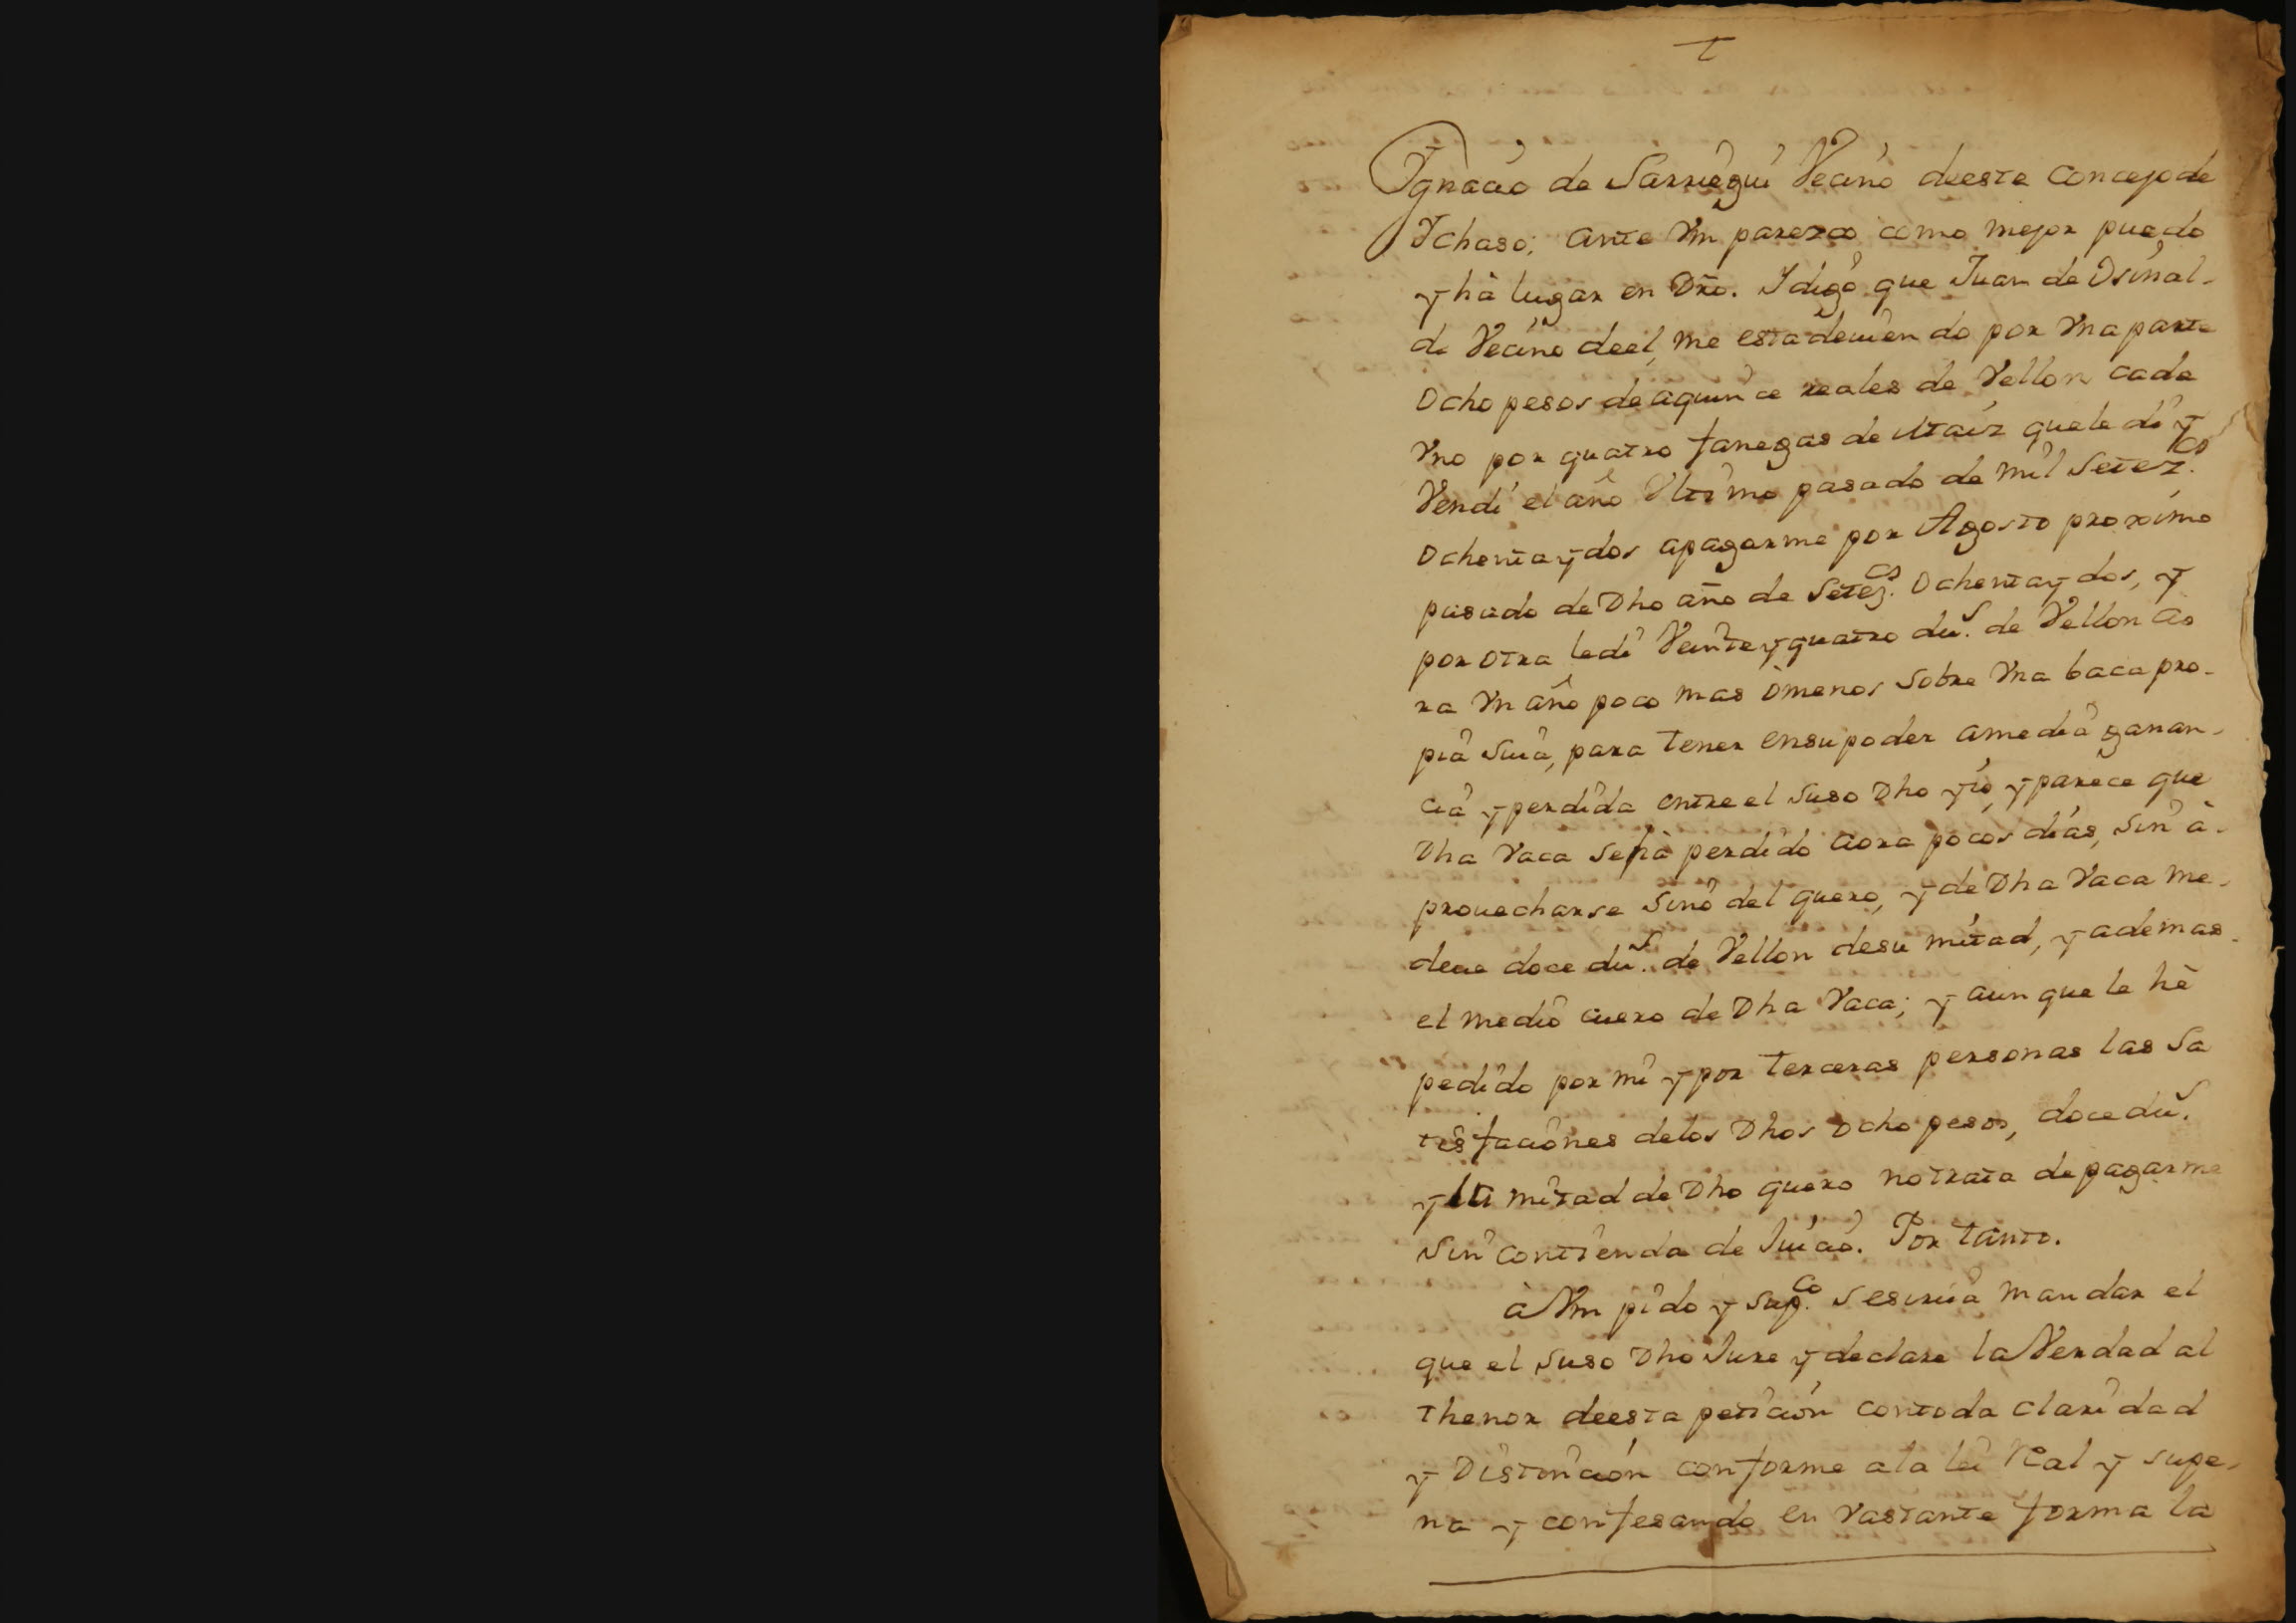 Ygnacio de Sarriegui Vecino deeste Concejo de
Ychaso; ante Vm parezco como mejor puedo
y hà lugar en Dro. Y digo que Juan de Osinal-
de Vecino deel, me esta deuiendo por Vna parte
Ocho pesos de aquince reales de Vellon cada
Vno por quatro fanegas de Maiz que le di y
Vendi el año Vltimo pasado de mil Setez.cos
Ochenta y dos apagarme por Agosto proximo
pasado de Dho año de Setez.cos Ochenta y dos, y
por otra le di Veinte y quatro du.s de Vellon ao
ra Vn año poco mas òmenos sobre Vna baca pro-
pia suia, para tener ensupoder amedia ganan-
cia y perdida entre el suso Dho y io, y parece que
Dha Vaca sehà perdido aora pocos dias, sin à-
prouecharse sino del quero, y de Dha Vaca me-
deue doce du.s de Vellon desu mitad, y ademas
el medio cuero de Dha Vaca; y aun que le hè
pedido por mi y por terceras personas las Sa
tisfaciones delos Dhos Ocho pesos, doce du.s
y la mitad de Dho quero no trata de pagarme
Sin contienda de Juicio. Por tanto.
à Vm pido y sup.co sesirua mandar el
que el suso Dho Jure y declare la Verdad al
thenor deesta peticion contoda claridad
y Distincion conforme ala lei Real y supe-
na y confesando en Vastante forma la